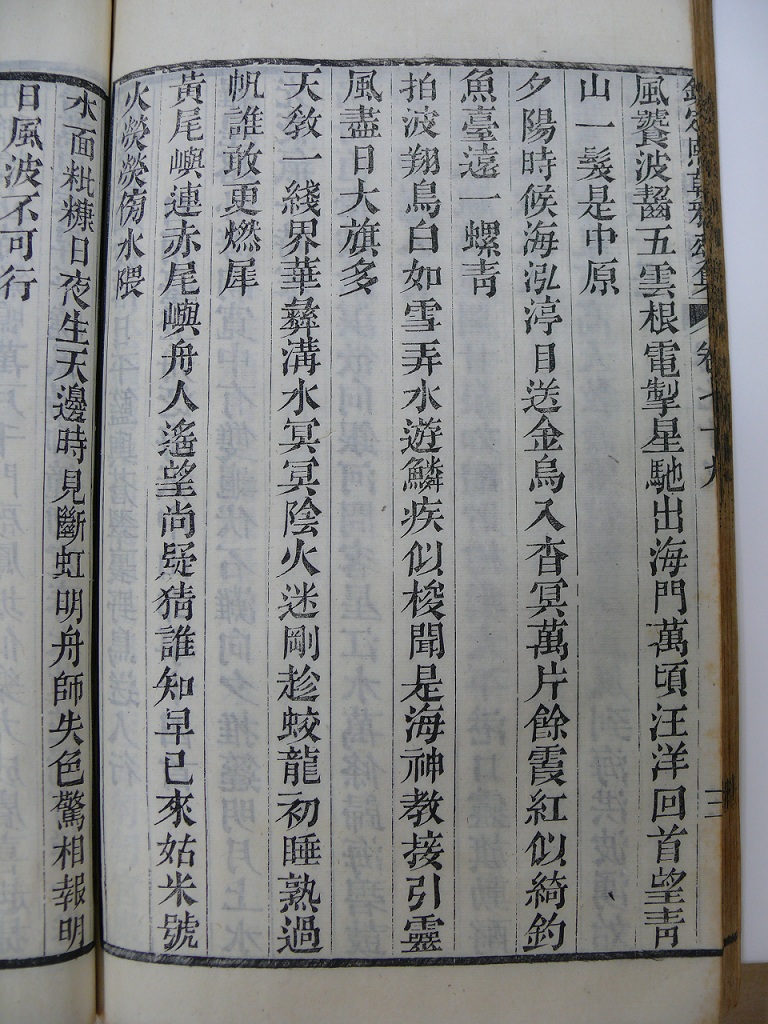 欽定熙朝雅頌集 卷七十九 三
風饕波齧五雲根電掣星馳出海門萬頃汪洋回首望青
山一髮是中原
夕陽時候海泓渟目送金烏入杳冥萬片餘霞紅似綺釣
魚臺遠一螺青
拍波翔鳥白如雪弄水遊鱗疾似梭聞是海神教接引靈
風盡日大旗多
天教一綫界華彝溝水冥冥陰火迷剛趁蛟龍初睡熟過
帆誰敢更燃犀
黃尾嶼連赤尾嶼舟人遙望尚疑猜誰知早已來姑米號
火熒熒傍水隈
水面粃糠日夜生天邊時見斷虹明舟師失色驚相報明
日風波不可行